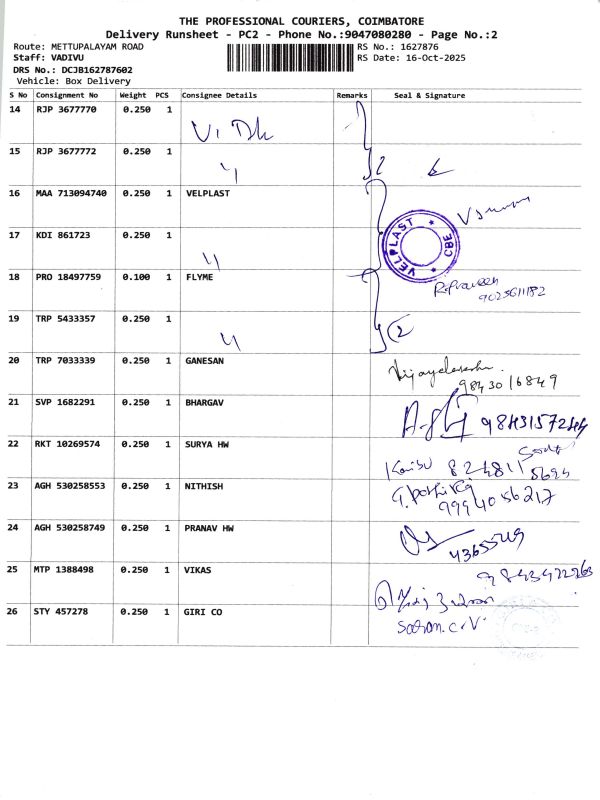 THE PROFESSIONAL COURIERS, COIMBATORE
Delivery Runsheet - PC2 - Phone No.:9047080280 - Page No.:2
Route: METTUPALAYAM ROAD
RS No.: 1627876
Staff: VADIVU
RS Date: 16-Oct-2025
DRS No.: DCJB162787602
Vehicle: Box Delivery
S No Consignment No Weight PCS Consignee Details Remarks Seal & Signature
14 RJP 3677770 0.250 1
15 RJP 3677772 0.250 1
16 MAA 713094740 0.250 1 VELPLAST
VELPLAST ★ CBE ★
17 KDI 861723 0.250 1
18 PRO 18497759 0.100 1 FLYME
R.Praveen
9025611182
19 TRP 5433357 0.250 1
2
20 TRP 7033339 0.250 1 GANESAN
98430 16849
21 SVP 1682291 0.250 1 BHARGAV
22 RKT 10269574 0.250 1 SURYA HW
23 AGH 530258553 0.250 1 NITHISH
9994056217
24 AGH 530258749 0.250 1 PRANAV HW
25 MTP 1388498 0.250 1 VIKAS
26 STY 457278 0.250 1 GIRI CO